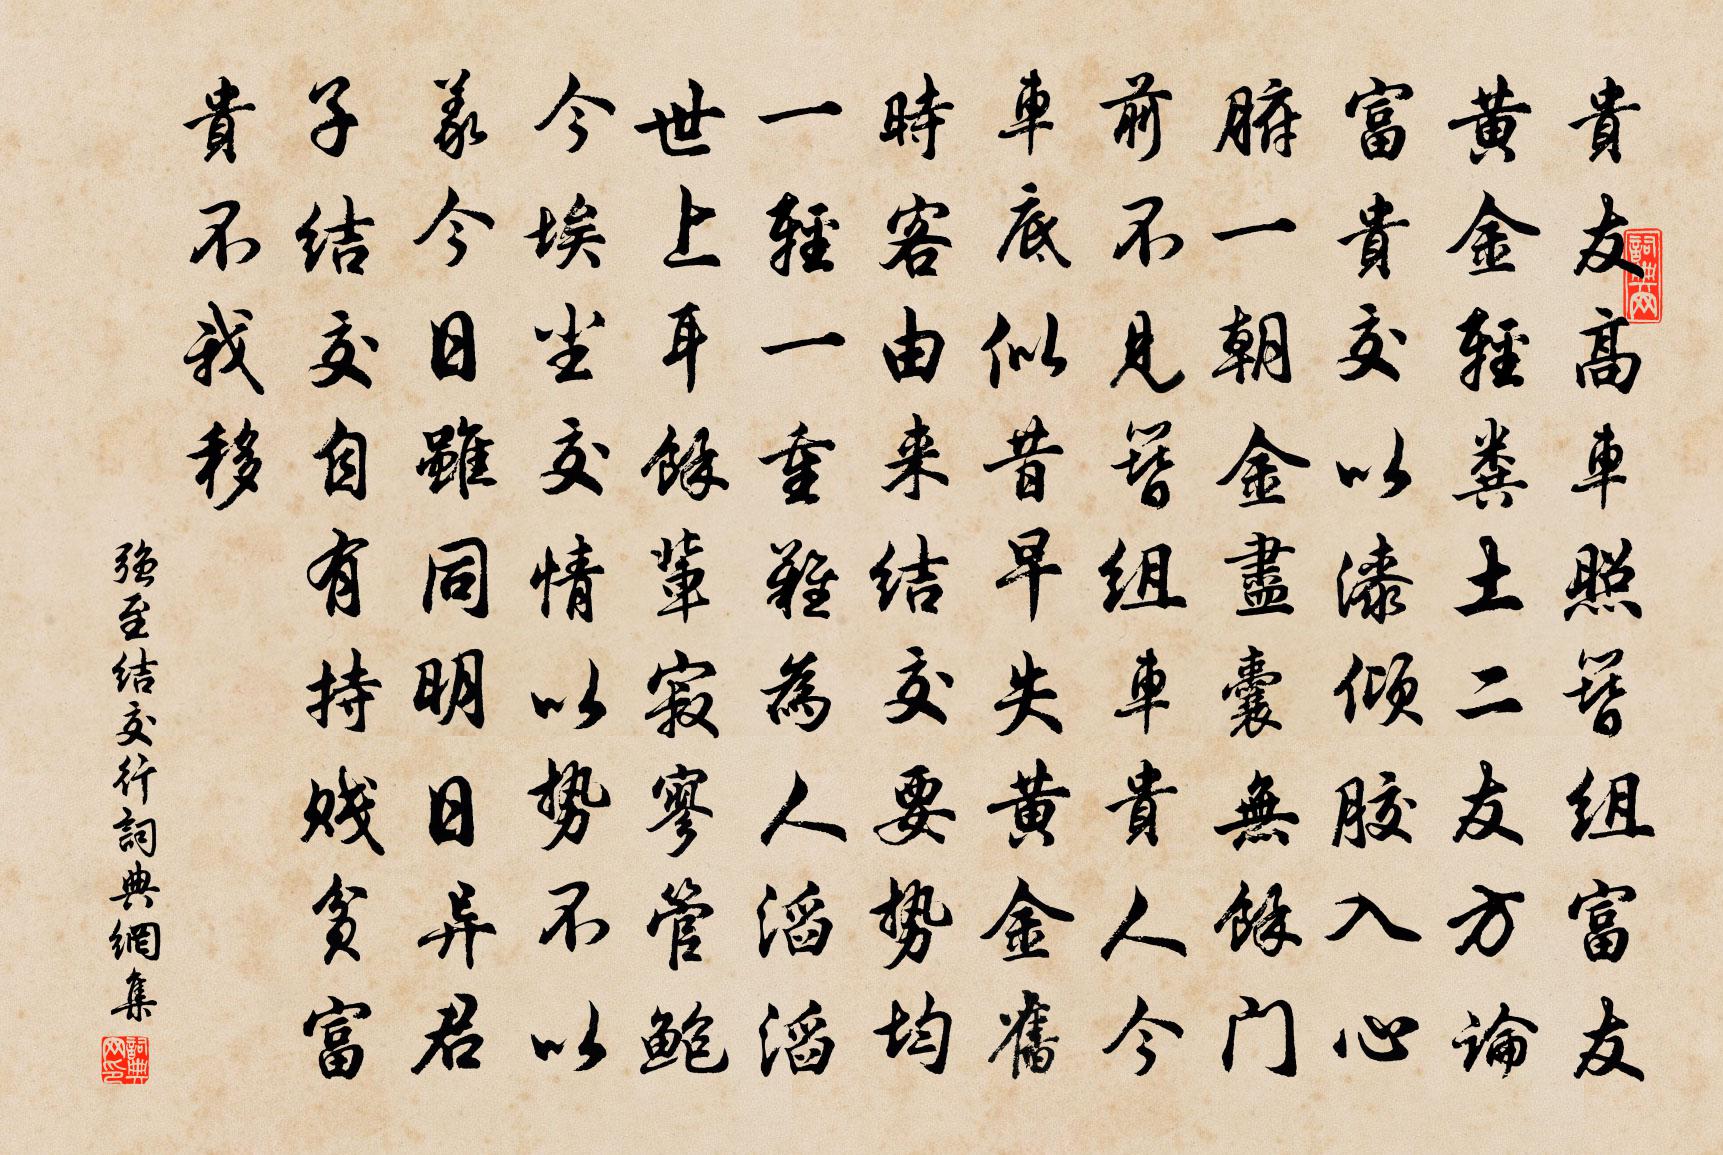 貴友高車照簪組富友
黄金輕糞土二友方論
富貴交以漆傾膠入心
腑一朝金盡囊無餘門
前不見簪組車貴人今
車底似昔早失黄金舊
時客由来結交要势均
一輕一重難為人滔滔
世上耳餘輩寂寥管鮑
今埃坐交情以势不以
義今日雖同明日异君
子結交自有持贱贫富
貴不我移
强至結交行詞典網集
詞典网
詞典网印